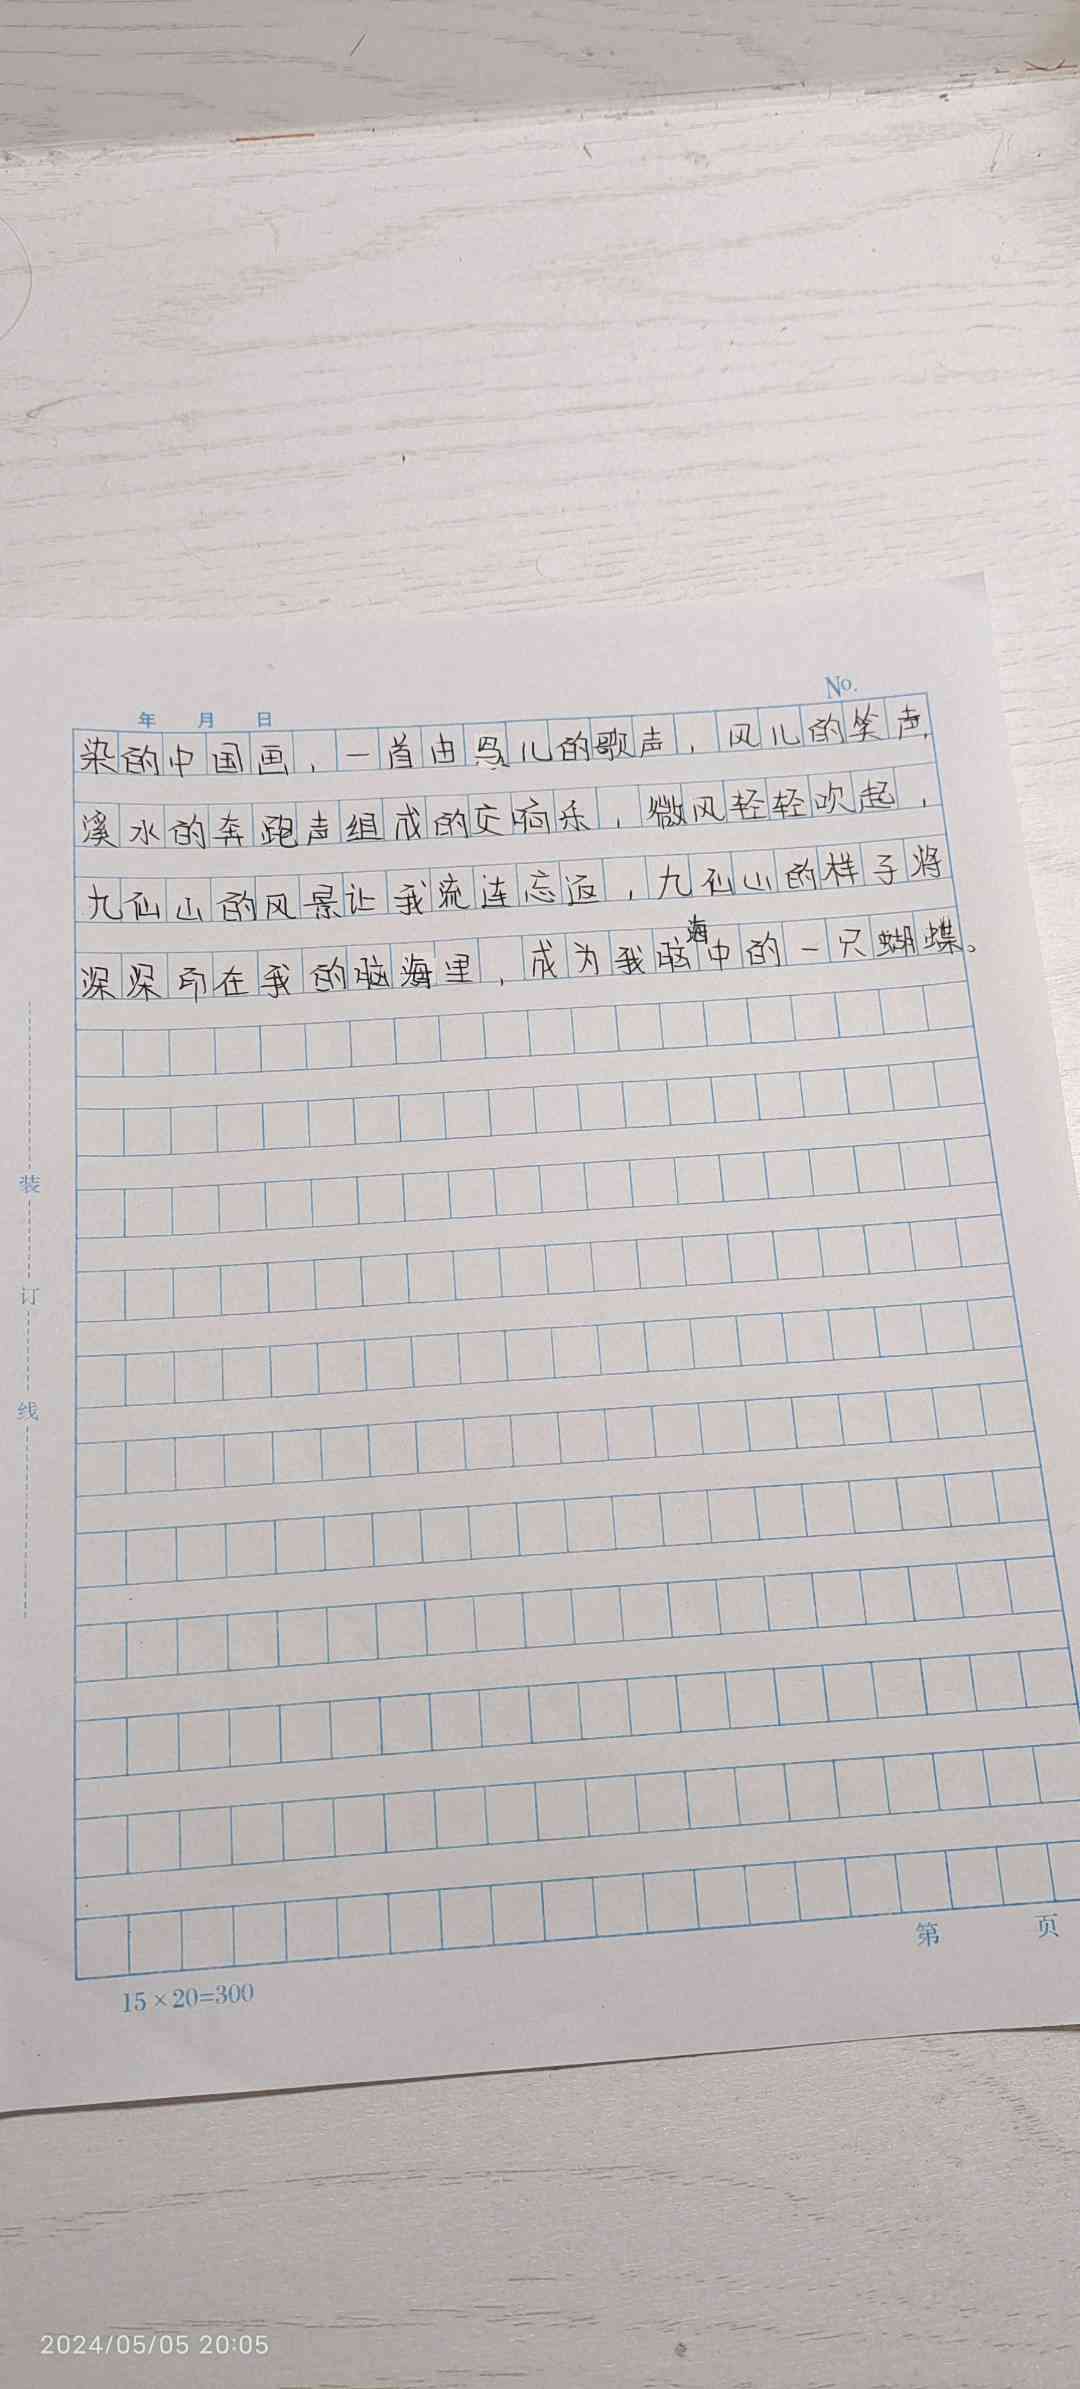 No.
年 月 日
染的中国画，一首由鸟儿的歌声，风儿的笑声，
溪水的奔跑声组成的交响乐，微风轻轻吹起，
九仙山的风景让我流连忘返，九仙山的样子将
深深印在我的脑海里，成为我脑海中的一只蝴蝶。
装
订
线
第 页
15×20=300
2024/05/05 20:05